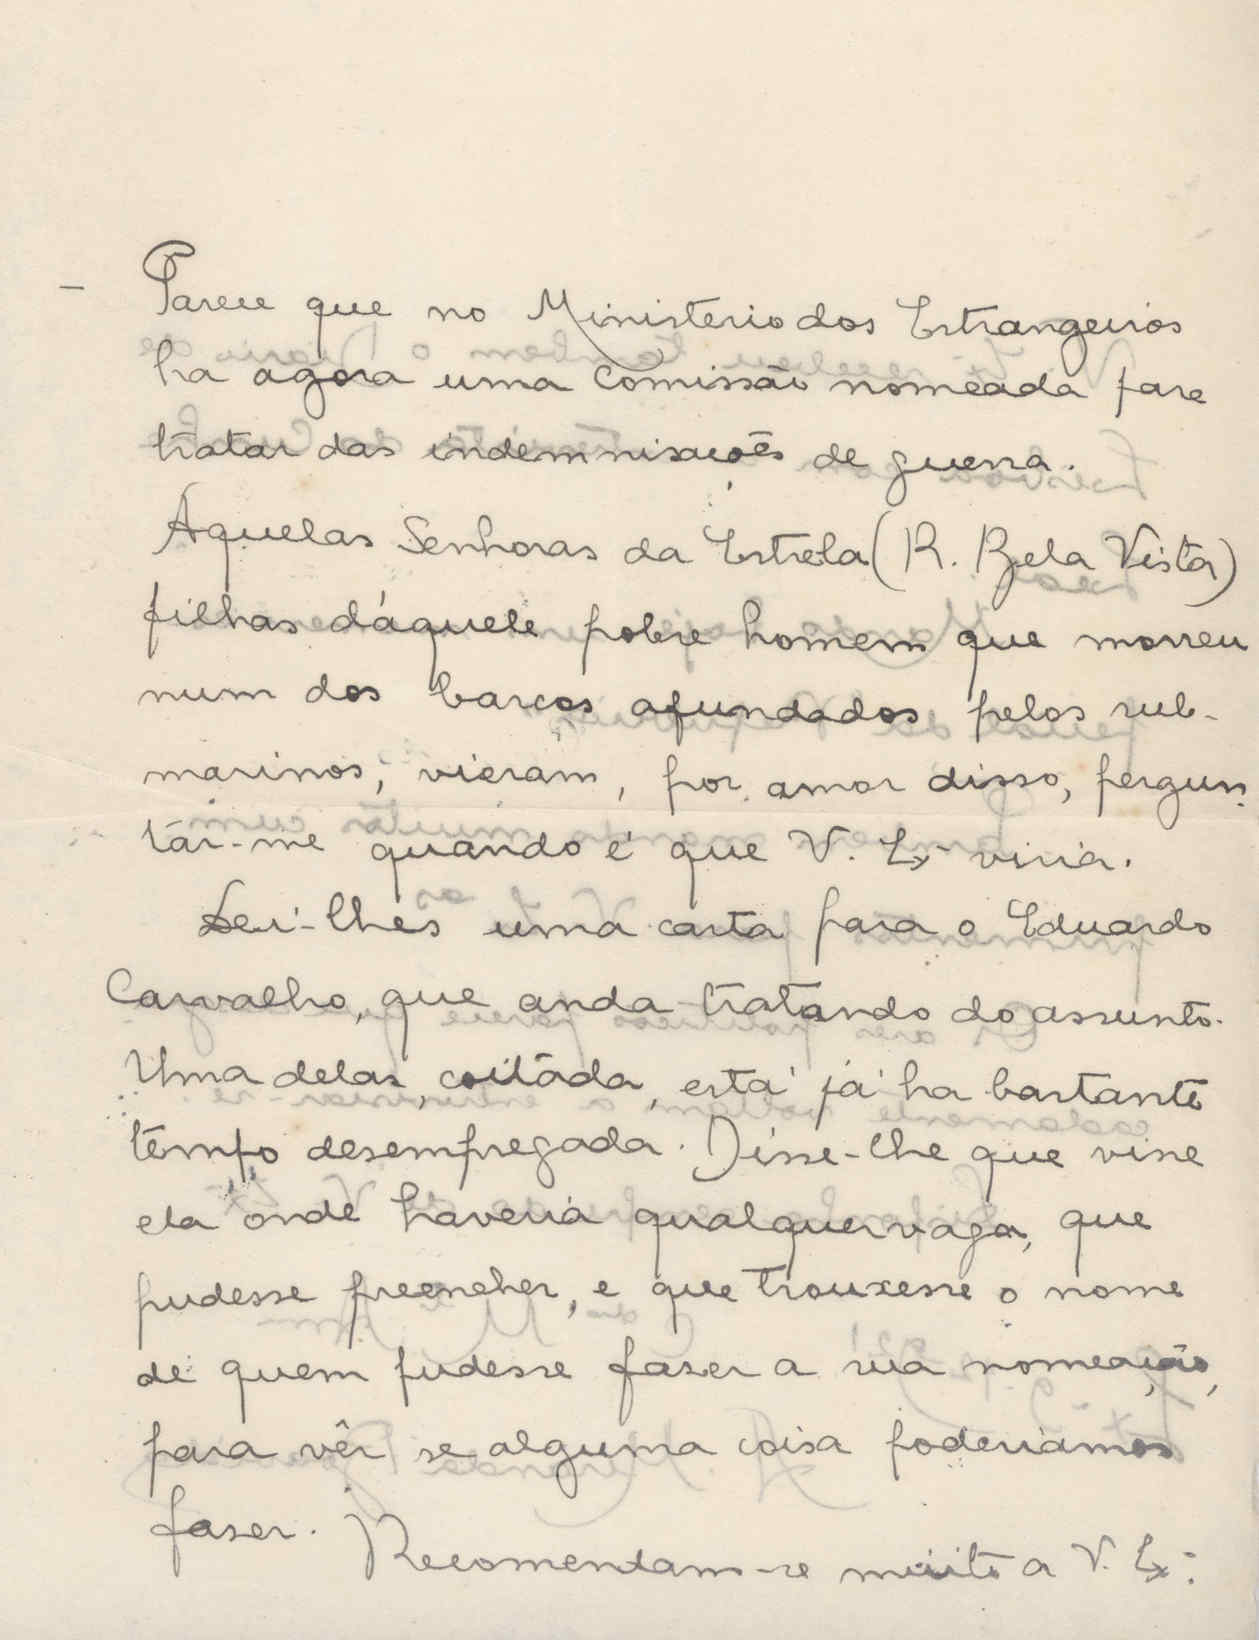 - Parece que no Ministerio dos Estrangeiros
ha agora uma Comissão nomeada para
tratar das indemnisações de guerra.
Aquelas Senhoras da Estrela (R. Bela Vista)
filhas dáquele pobre homem que morreu
num dos barcos afundados pelos sub-
marinos, vieram, por amor disso, pergun-
tar-me quando é que V. Ex.ª viria.
Dei-lhes uma carta para o Eduardo
Carvalho, que anda tratando do assunto.
Uma delas, coitada, está já ha bastante
tempo desempregada. Disse-lhe que visse
ela onde haveria qualquer vaga, que
pudesse preencher, e que trouxesse o nome
de quem pudesse fazer a sua nomeação,
para vêr se alguma coisa poderiamos
fazer. Recomendam-se muito a V. Ex.ª